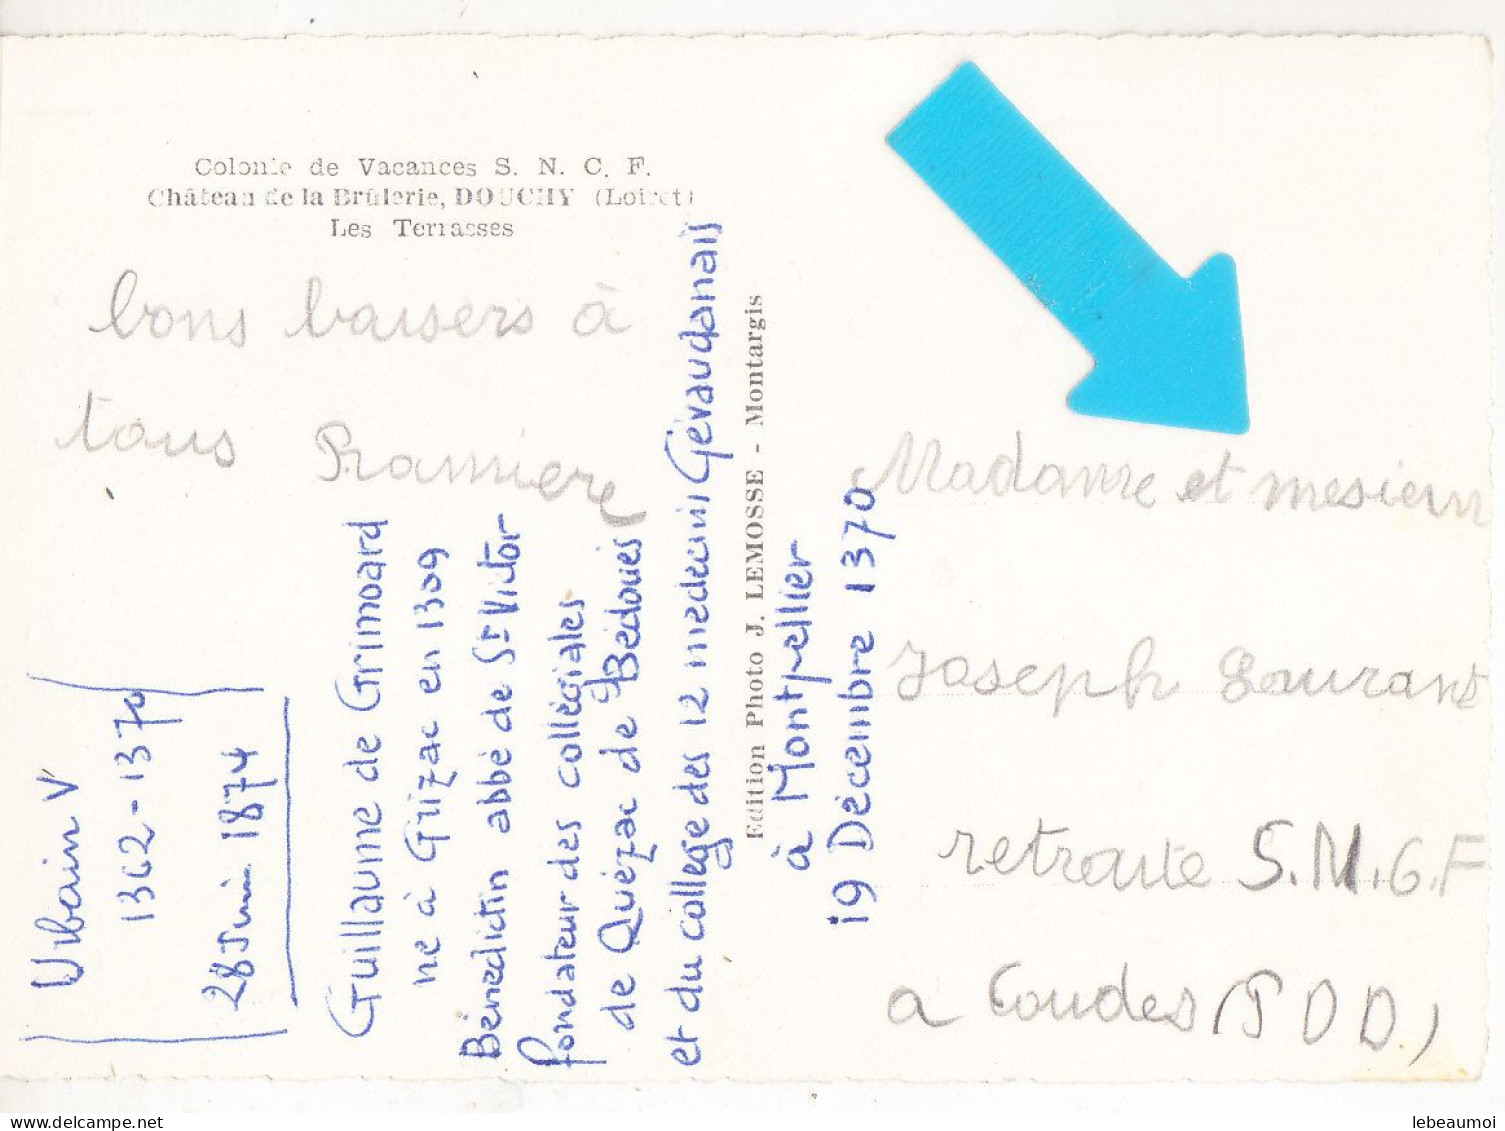 Colonie de Vacances S. N. C. F.
Château de la Brûlerie, DOUCHY (Loiret)
Les Terrasses
bons baisers à
tous
Edition Photo J. LEMOSSE - Montargis
Madame et mesieur
Joseph
retraite S.N.C.F
a Coudes (PDD)
Urbain V
1362-1370
28 Juin 1874
Guillaume de Grimoard
né à Grizac en 1309
Bénédictin abbé de St Victor
fondateur des collégiales
de Quézac de Bédoues
et du collège des 12 médecins Gévaudanais
à Montpellier
19 Décembre 1370
delcampe.net
lebeaumoi